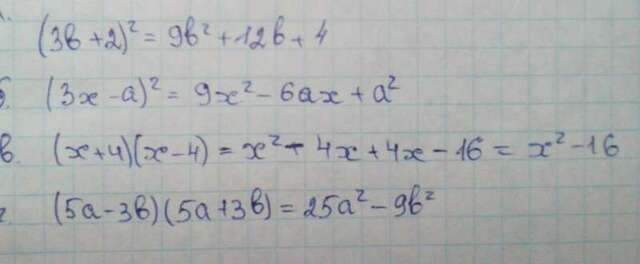 (3b + 2)² = 9b² + 12b + 4
(3x - a)² = 9x² - 6ax + a²
в. (x+4)(x-4) = x² - 4x + 4x - 16 = x² - 16
(5a - 3b)(5a + 3b) = 25a² - 9b²